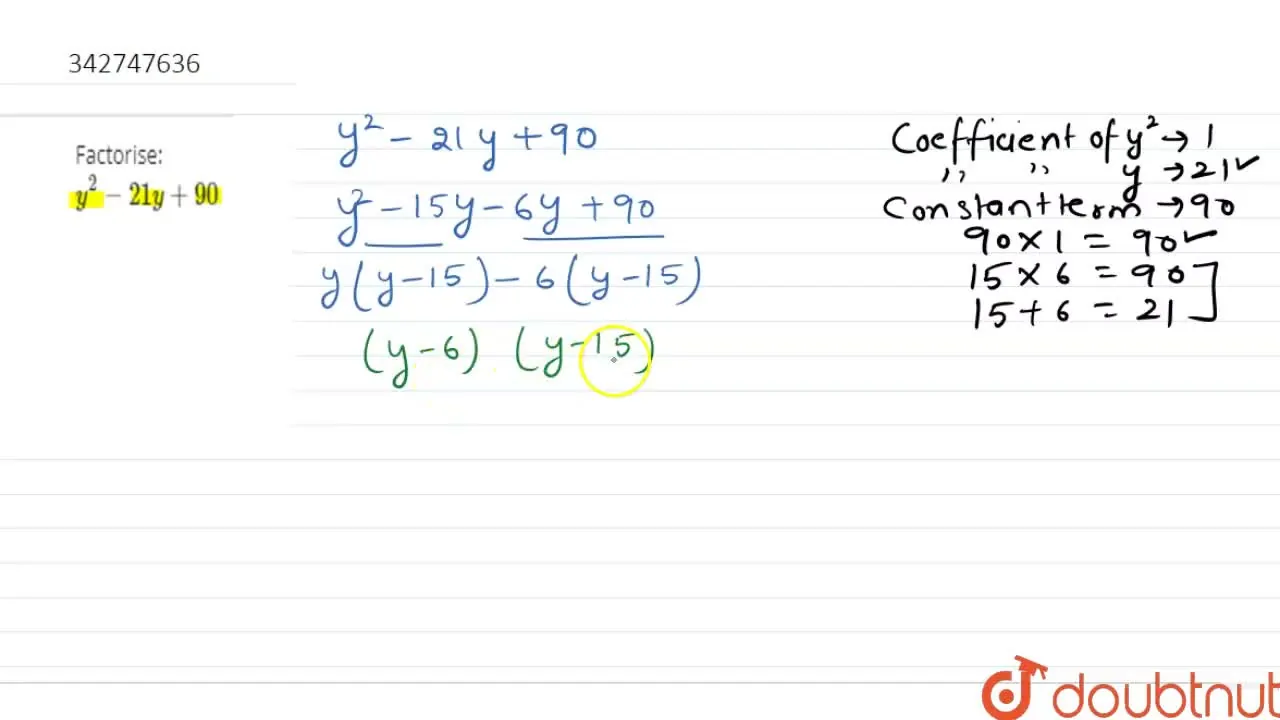 342747636
Factorise:
y² − 21y + 90
y² − 21y + 90
y² − 15y − 6y + 90
y(y − 15) − 6(y − 15)
(y − 6) (y − 15)
Coefficient of y² → 1
,, ,, y → 21 ✓
Constant term → 90
90 × 1 = 90 ✓
15 × 6 = 90
15 + 6 = 21
doubtnut